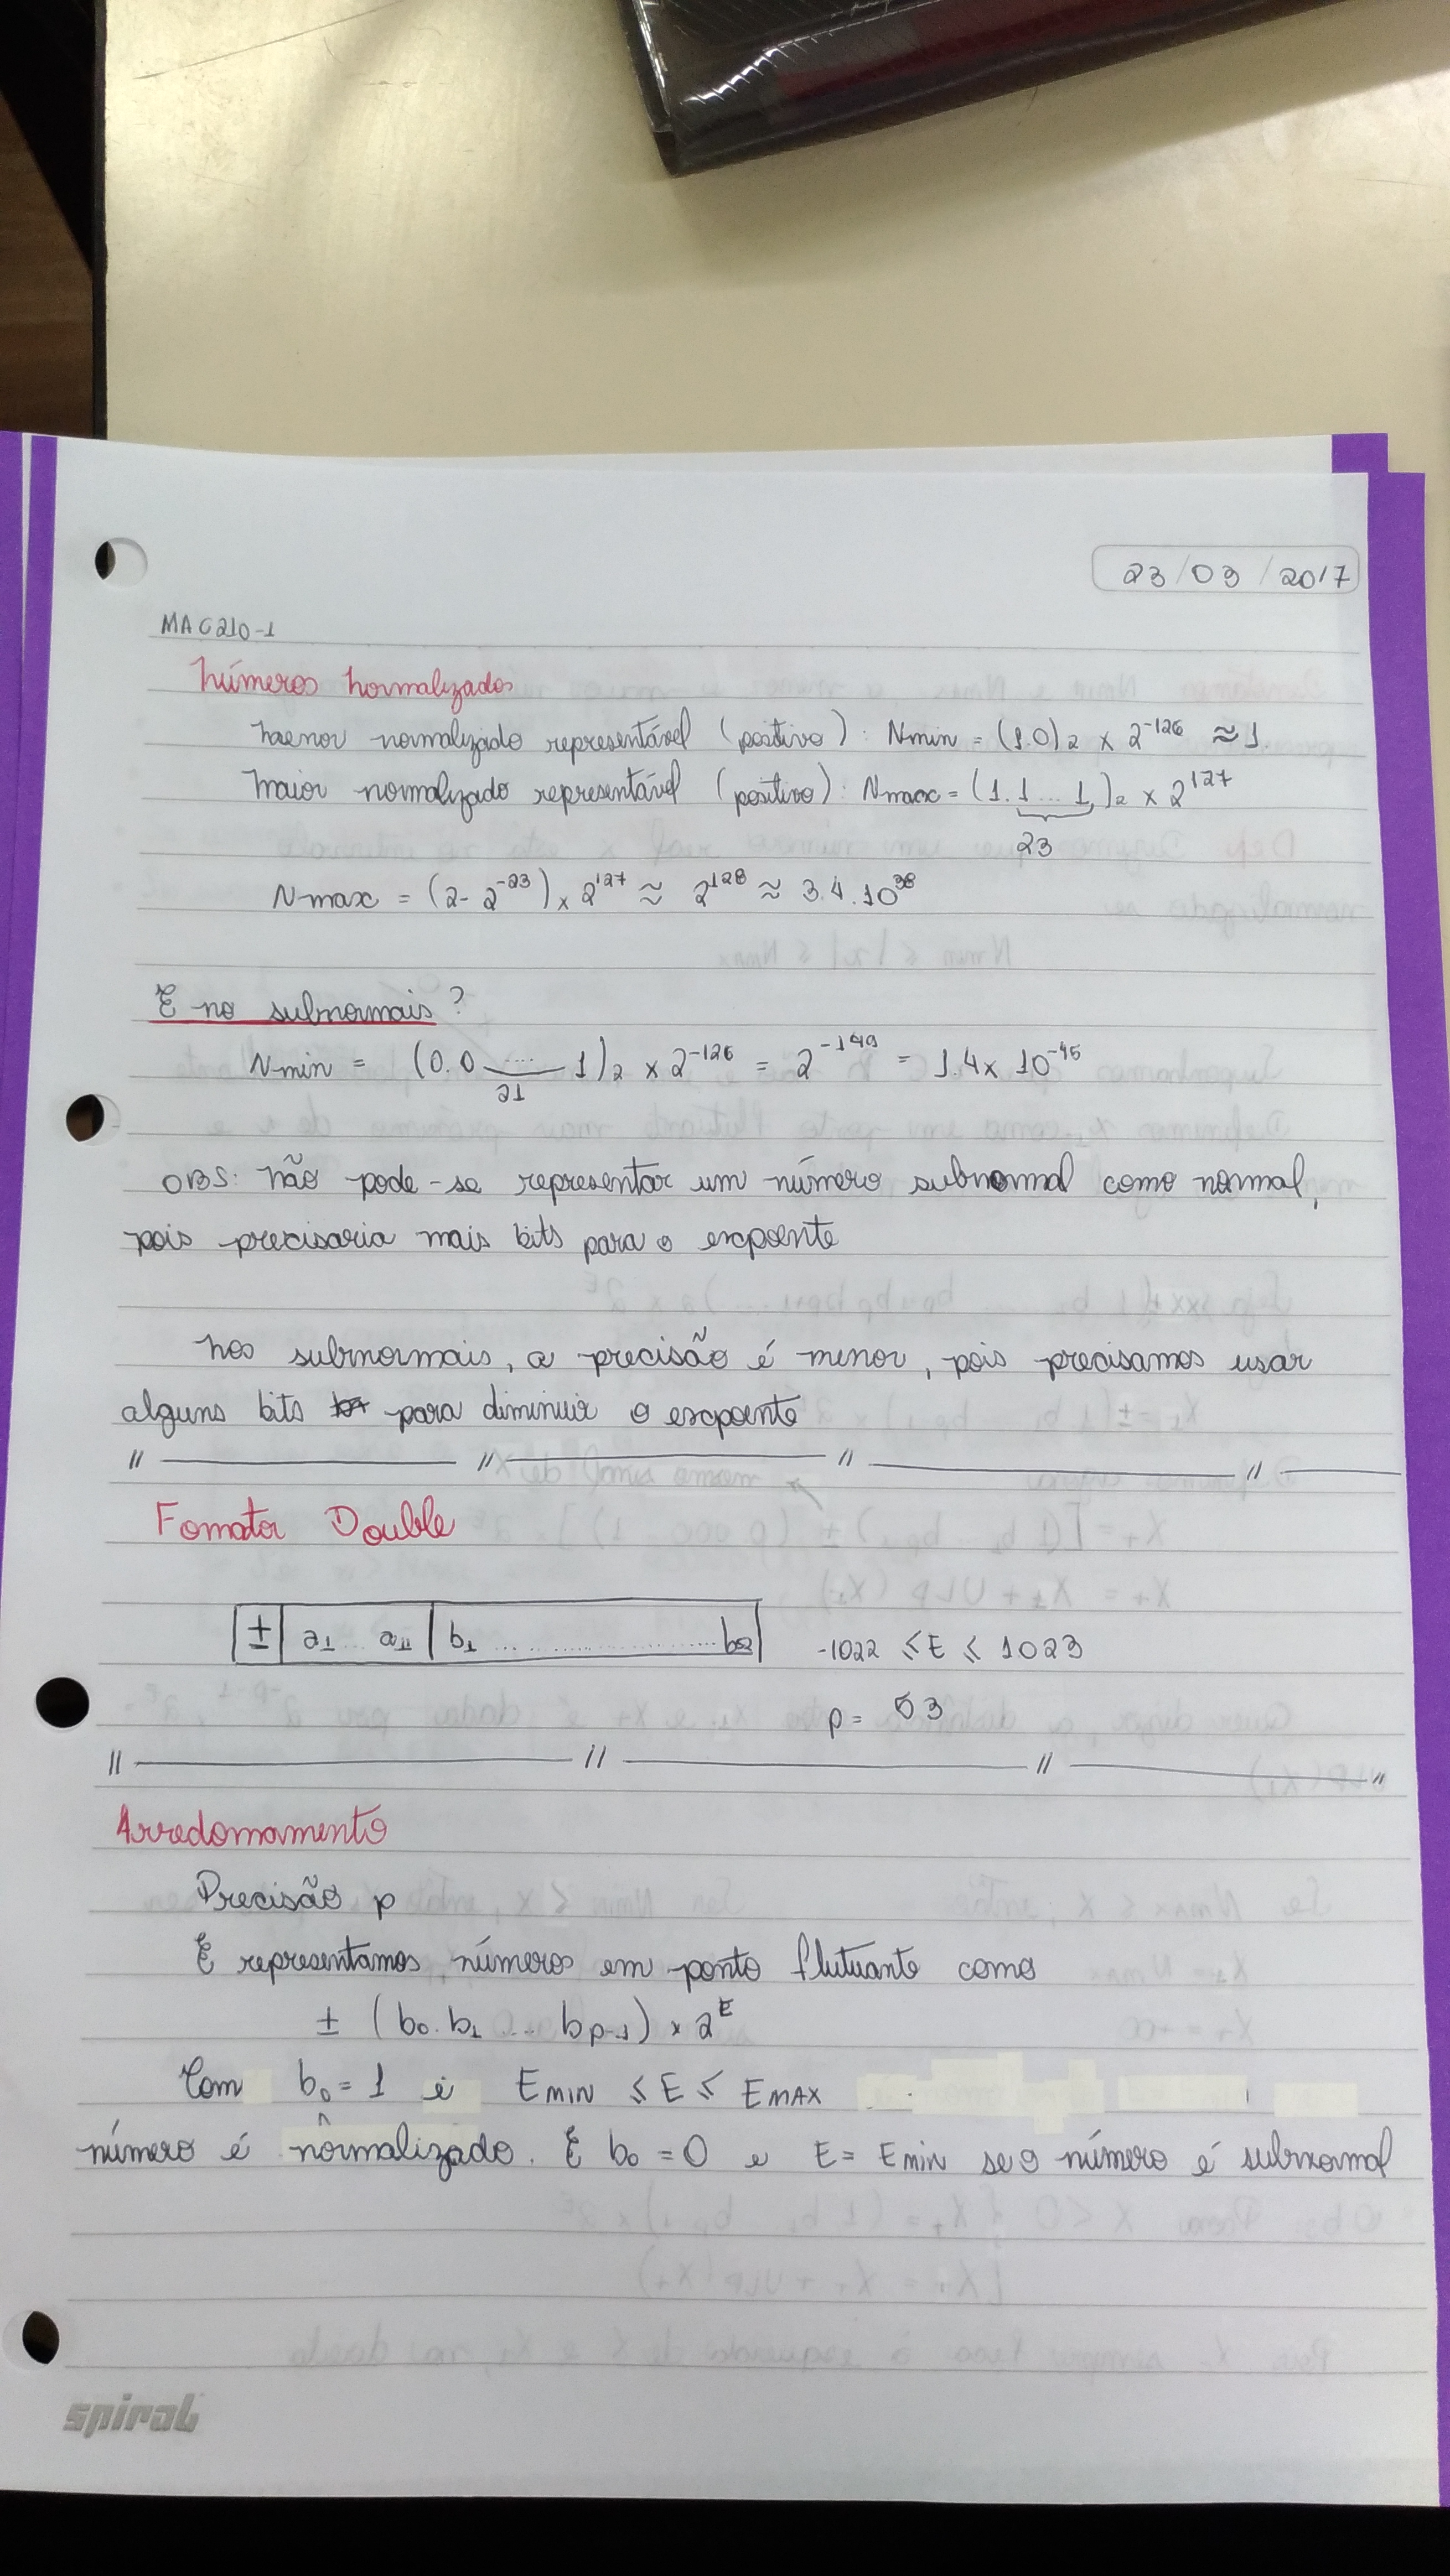 23/03/2017
MAC210-1
Números Normalizados
Menor normalizado representável (positivo): Nmin = (1.0)₂ × 2⁻¹²⁶ ≈ 1.
Maior normalizado representável (positivo): Nmax = (1.1...1)₂ × 2¹²⁷
23
Nmax = (2-2⁻²³) × 2¹²⁷ ≈ 2¹²⁸ ≈ 3.4.10³⁸
E no subnormais?
Nmin = (0.0 .... 1)₂ × 2⁻¹²⁶ = 2⁻¹⁴⁹ = 1.4 × 10⁻⁴⁵
21
OBS: Não pode-se representar um número subnormal como normal,
pois precisaria mais bits para o expoente
Nos subnormais, a precisão é menor, pois precisamos usar
alguns bits para diminuir o expoente
// // // //
Fomator Double
± a₁ ... a₁₁ b₁ ........ b₅₂ -1022 ≤ E ≤ 1023
p = 53
// // // //
Arredomamento
Precisão p
E representamos números em ponto flutuante como
± (b₀.b₁ ... bₚ₋₁) × 2ᴱ
Com b₀ = 1 e EMIN ≤ E ≤ EMAX
número é normalizado. E b₀ = 0 e E = EMIN se o número é subnormal
spiral